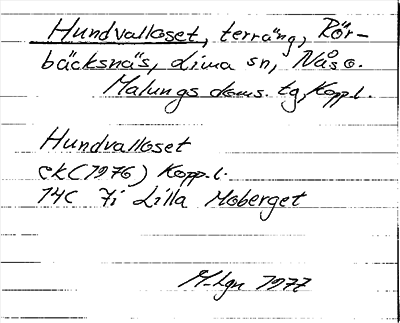 Hundvallaset, terräng, Rör-
bäcksnäs, Lima sn, Nås o.
Malungs doms. tg, Kopp.l.
Hundvallaset
ek (1976) Kopp.l.
14C 7i Lilla Moberget
M-lgn 1977